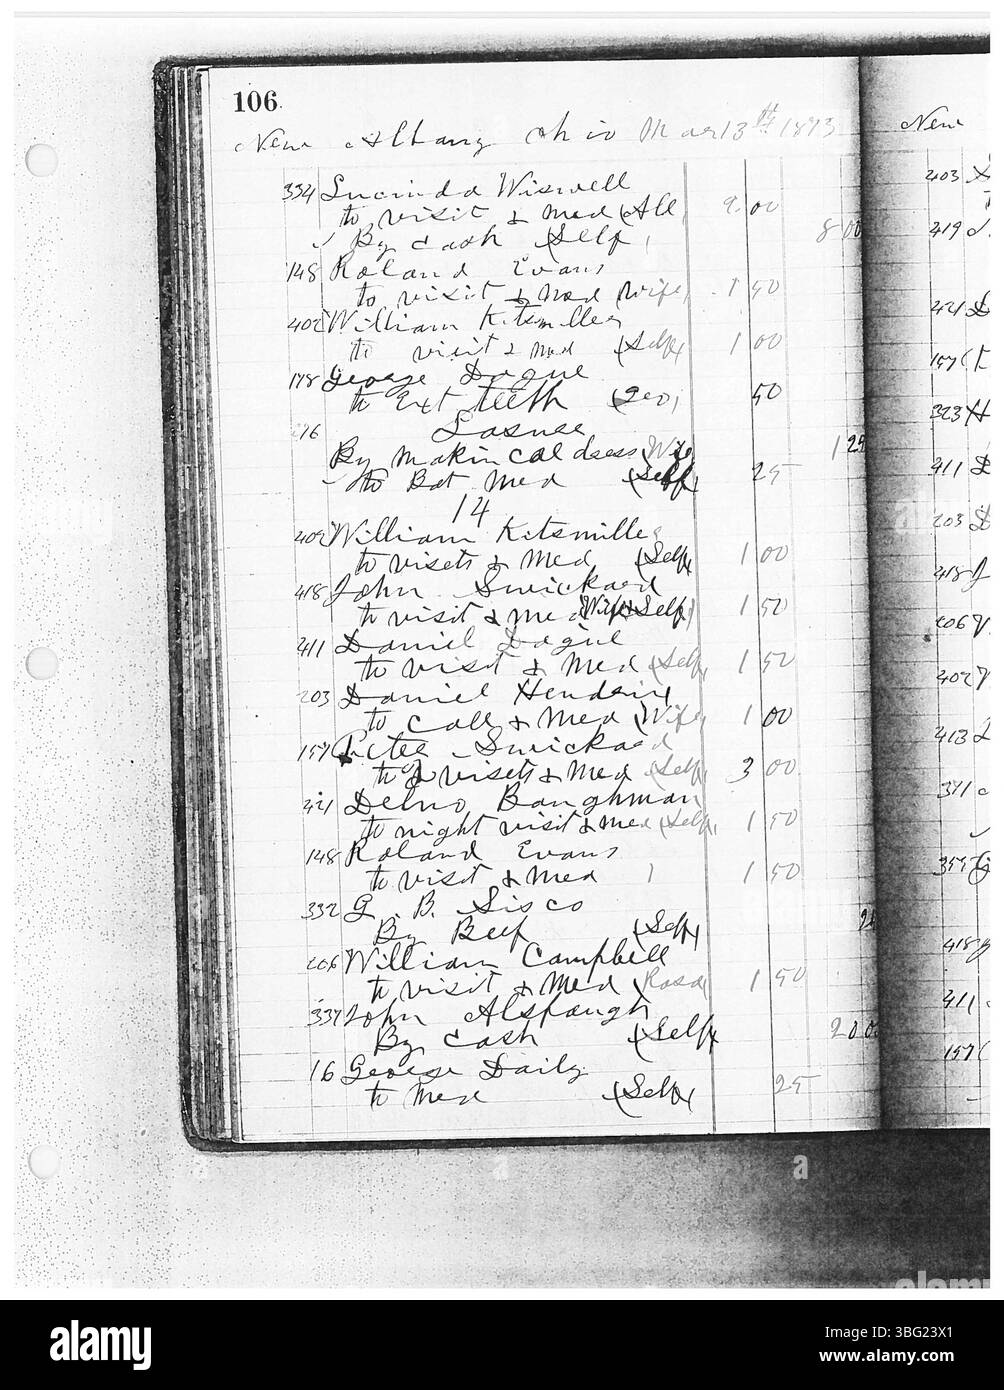 106.
New Albany Ohio Mar 13th 1893
334 Lucinda Wiswell
to visit & Med (All) 9.00
✓ By Cash (Self) 8 00
148 Roland Evans
to visit & Med Wife 1 50
402 William Kitsmiller
to visit & Med (Self) 1 00
178 George Dague
to Ext teeth (Geo) 50
By Makin Cal dress Wife 1 25
to Bot Med (Self) 25
14
402 William Kitsmiller
to visets & Med (Self) 1 00
418 John Swickard
to visit & Med Wife & Self 1 50
411 Daniel Dague
to visit & Med (Self) 1 50
203 Daniel Hendrix
to Call & Med (Wife) 1 00
157 Peter Swickard
to 2 visets & Med (Self) 3 00
421 Delno Baughman
to night visit & Med (Self) 1 50
148 Roland Evans
to visit & Med 1 50
332 G. B. Sisco
By Beef (Self)
206 William Campbell
to visit & Med (Rosa) 1 50
337 John Alspaugh
By Cash (Self) 20 0
16 George Daily
to Med (Self) 25
New
403
419
421
157
323
411
203
418
206
402
413
371
357
418
411
157
alamy
Image ID: 3BG23X1
www.alamy.com